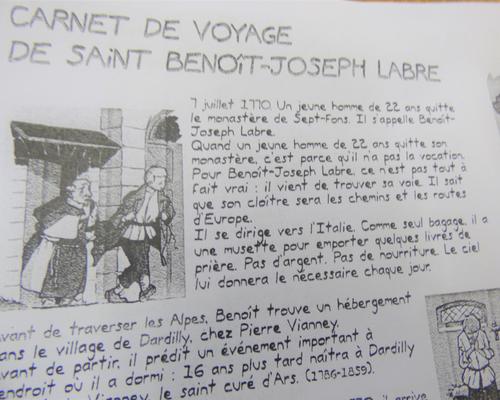 CARNET DE VOYAGE
DE SAiNT BENOÎT-JOSEPH LABRE
7 juillet 1770. Un jeune homme de 22 ans quitte
le monastère de Sept-Fons. Il s'appelle Benoît-
Joseph Labre.
Quand un jeune homme de 22 ans quitte son
monastère, c'est parce qu'il n'a pas la vocation.
Pour Benoît-Joseph Labre, ce n'est pas tout à
fait vrai : il vient de trouver sa voie. Il sait
que son cloître sera les chemins et les routes
d'Europe.
Il se dirige vers l'Italie. Comme seul bagage, il a
une musette pour emporter quelques livres de
prière. Pas d'argent. Pas de nourriture. Le ciel
lui donnera le nécessaire chaque jour.
avant de traverser les Alpes, Benoît trouve un hébergement
ans le village de Dardilly, chez Pierre Vianney.
avant de partir, il prédit un événement important à
endroit où il a dormi : 16 ans plus tard naîtra à Dardilly
Vianney, le saint curé d'Ars. (1786-1859).
il arrive